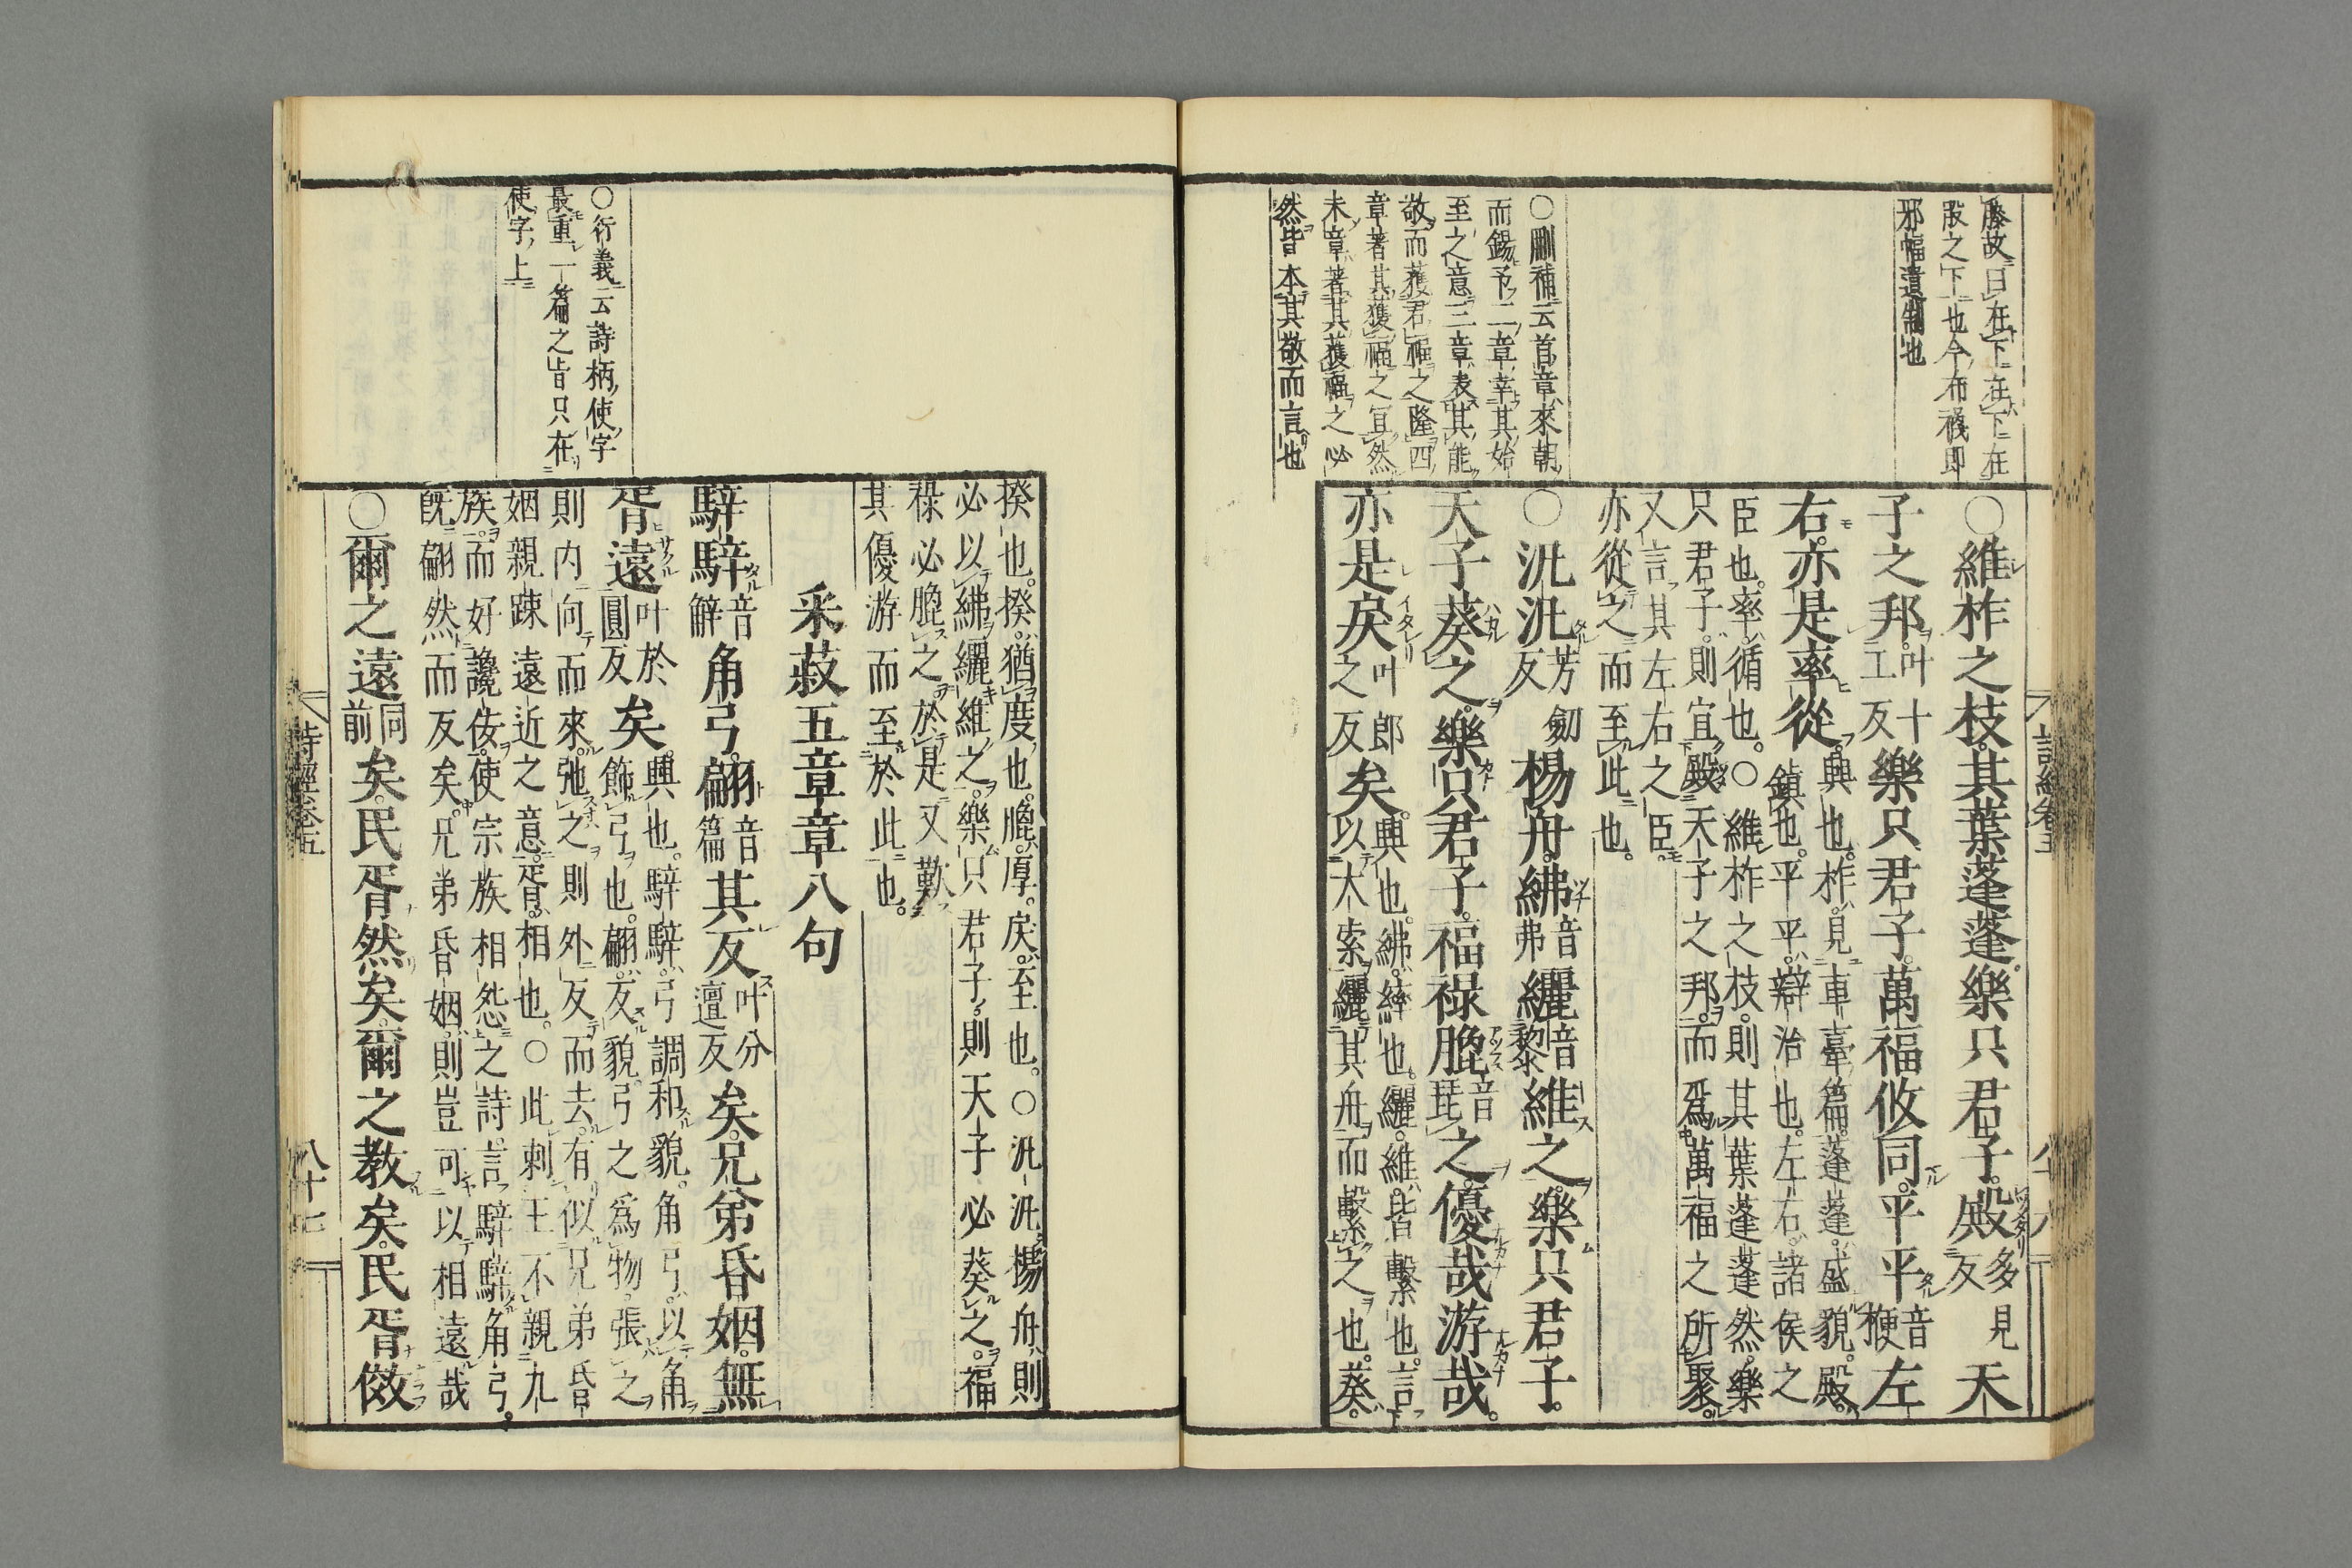 滕故曰在下在下在
股之下也今布襪即
邪幅遺制也
○刪補云首章來朝
而錫予二章幸其始
至之意三章表其能
敬而獲君福之隆四
章著其獲福之宜然
末章著其獲福之必
然皆本其敬而言也
○維柞之枝其葉蓬蓬樂只君子殿多見反天
子之邦叶工十反樂只君子萬福攸同平平音鞭左
右亦是率從興也柞見車舝篇蓬蓬盛貌殿
鎮也平平辯治也左右諸侯之
臣也率循也○維柞之枝則其葉蓬蓬然樂
只君子則宜殿天子之邦而爲萬福之所聚
又言其左右之臣
亦從之而至此也
○汎汎芳劒反楊舟紼音弗纚音黎維之樂只君子
天子葵之樂只君子福祿膍音琵之優哉游哉
亦是戾叶郎之反矣興也紼繂也纚維皆繫也言
以大索纚其舟而繫之也葵
揆也揆猶度也膍厚戾至也○汎汎楊舟則
必以紼纚維之樂只君子則天子必葵之福
祿必膍之於是又歎
其優游而至於此也
采菽五章章八句
騂騂音觧角弓翩音篇其反叶分邅反矣兄弟昏姻無
胥遠叶於圓反矣興也騂騂弓調和貌角弓以角
飾弓也翩反貌弓之爲物張之
則内向而來弛之則外反而去有似兄弟昏
姻親踈遠近之意胥相也○此刺王不親九
族而好讒佞使宗族相怨之詩言騂騂角弓
旣翩然而反矣兄弟昏姻則豈可以相遠哉
○爾之遠同前矣民胥然矣爾之教矣民胥傚
○衍義云詩柄使字
最重一篇之皆只在
使字上
詩經卷五
八十六
詩經卷五
八十七